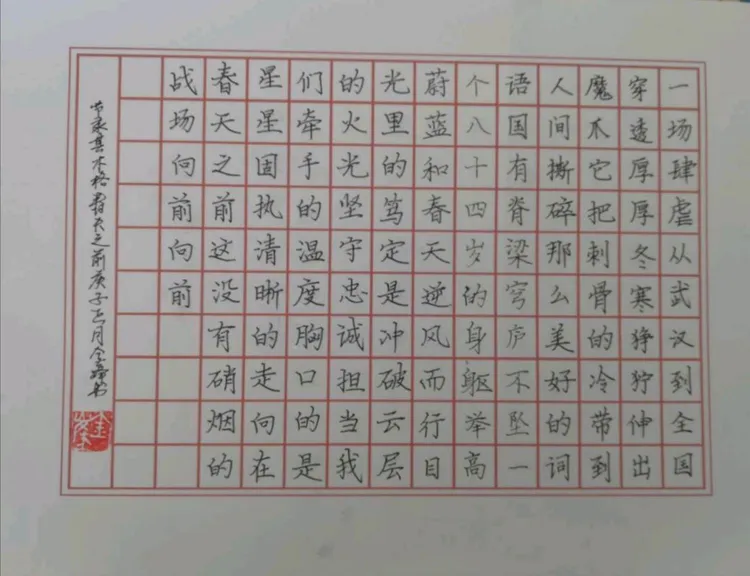 一场肆虐从武汉到全国
穿透厚厚冬寒狰狞伸出
魔爪它把刺骨的冷带到
人间撕碎那么美好的词
语国有脊梁穹庐不坠一
个八十四岁的身躯举高
蔚蓝和春天逆风而行目
光里的笃定是冲破云层
的火光坚守忠诚担当我
们牵手的温度胸口的是
星星固执清晰的走向在
春天之前这没有硝烟的
战场向前向前
节录其木格春天之前庚子三月金书